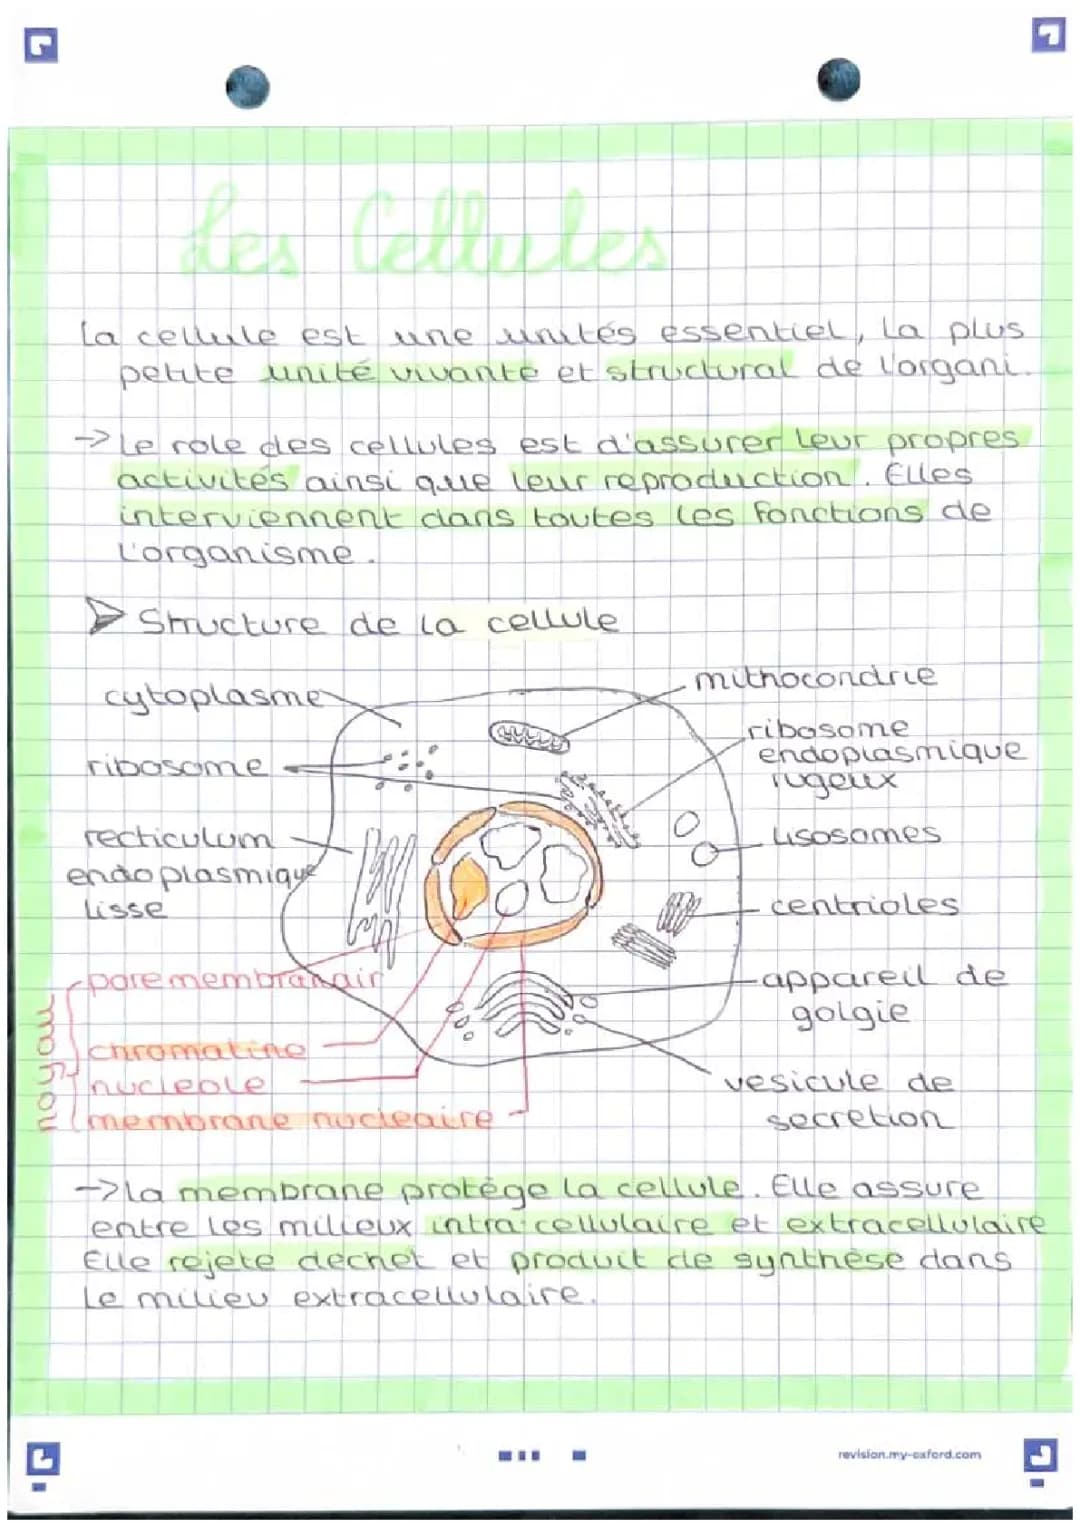 Les Cellules
La cellule est une unités essentiel, la plus
petite unité vivante et structural de l'organi.
-> Le role des cellules est d'assurer leur propres
activités ainsi que leur reproduction. Elles
interviennent dans toutes les fonctions de
l'organisme.
Structure de la cellule
cytoplasme
mithocondrie
ribosome
ribosome
endoplasmique
rugeux
recticulum
endoplasmique
lisse
lisosomes
centrioles
noyau
pore membranair
appareil de
golgie
chromatine
nucleole
membrane nucleaire
vesicule de
secretion
-> La membrane protège la cellule. Elle assure
entre les milieux intra-cellulaire et extracellulaire
Elle rejete dechet et produit de synthèse dans
le milieu extracellulaire.
revision.my-oxford.com